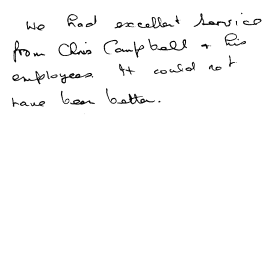 We had excellent service
from Chris Campbell + his
employees. It could not
have been better.